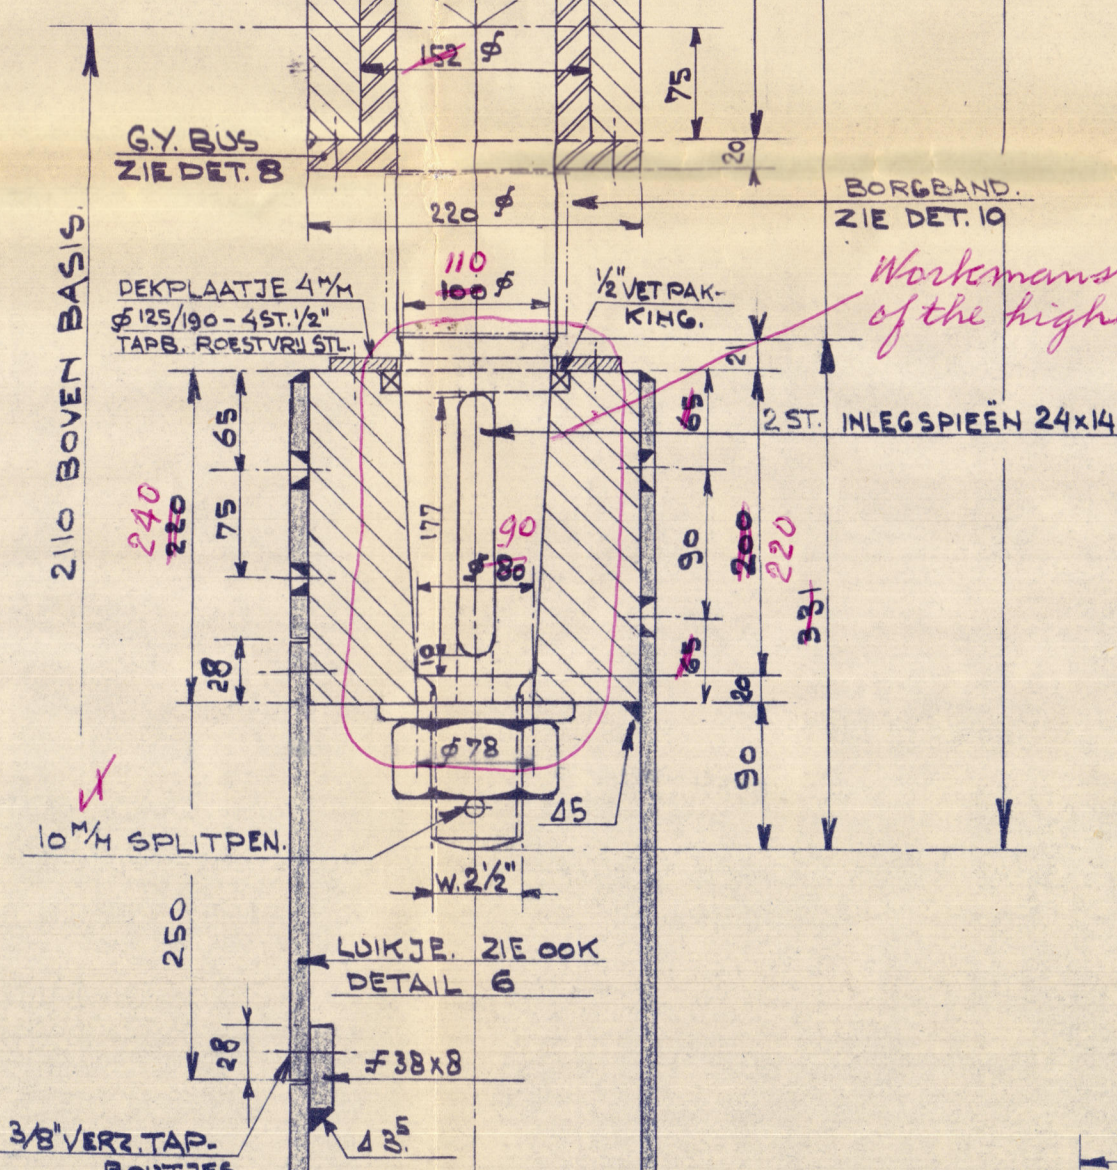 152 ø
75
20
G.Y. BUS
ZIE DET. 8
BORGBAND.
ZIE DET. 10
220 ø
2110 BOVEN BASIS
110
100 ø
DEKPLAATJE 4 M/M
ø 125/190 - 4 ST. 1/2"
TAPB. ROESTVRIJ STL.
1/2" VET PAK-
KING.
Workmans
of the high
21
65
65
2 ST. INLEGSPIEËN 24x14
240
220
75
177
90
80
90
200
220
331
28
10
65
20
ø 78
90
Δ5
10 M/M SPLITPEN.
W. 2 1/2"
250
LUIKJE. ZIE OOK
DETAIL 6
28
≠ 38x8
3/8" VERZ. TAP-
Δ 3.5